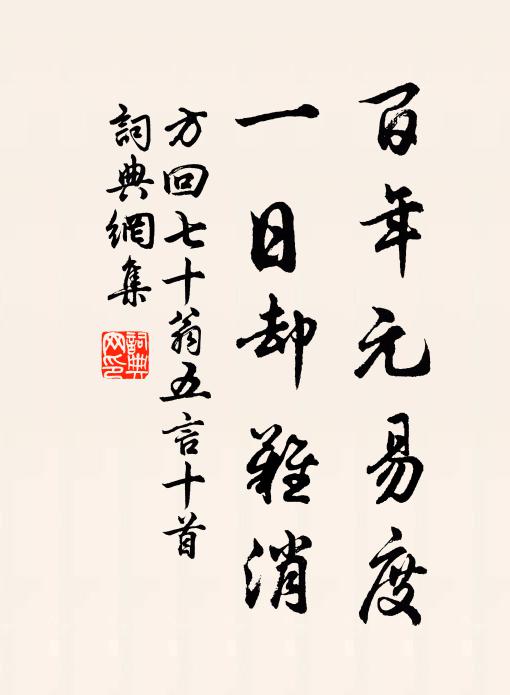 百年元易度
一日却難消
方回七十翁五言十首
詞典網集
詞典网印